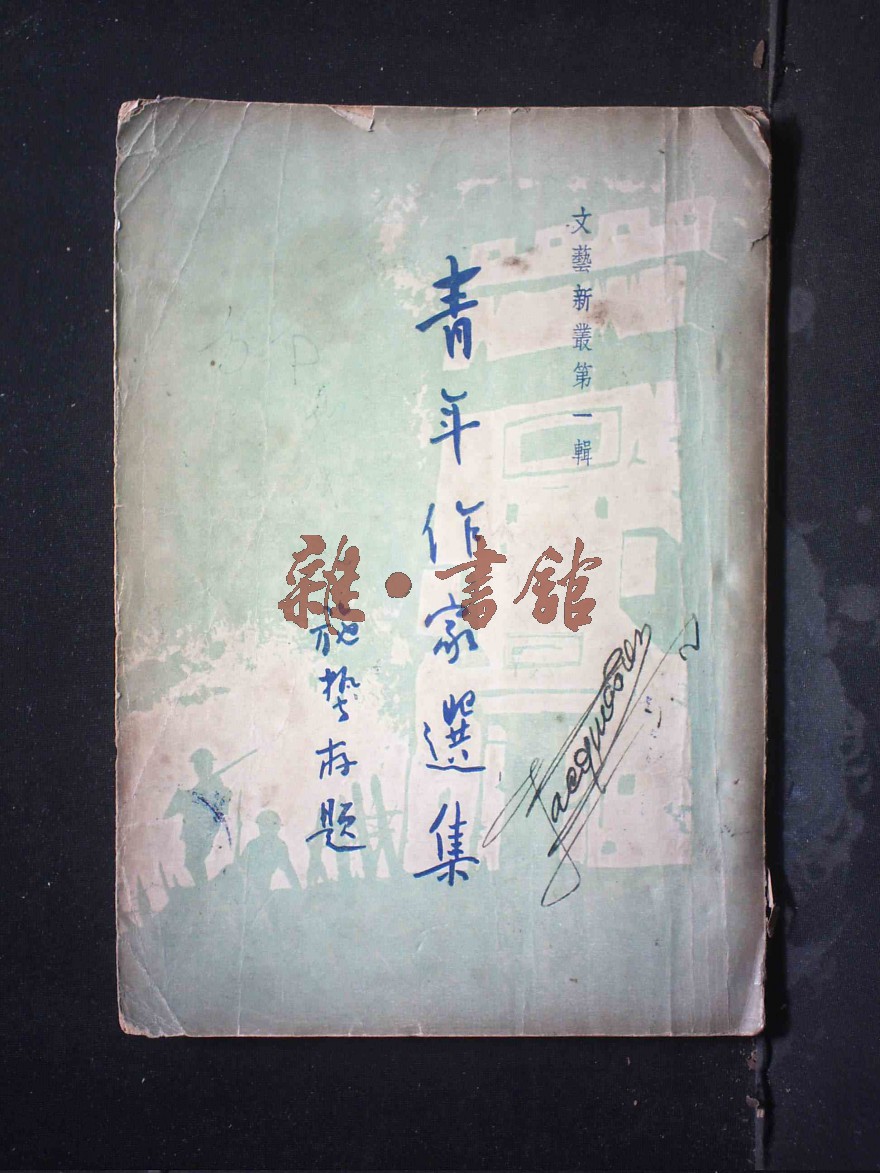 文藝新叢第一輯
青年作家選集
施蟄存題
雜·書館